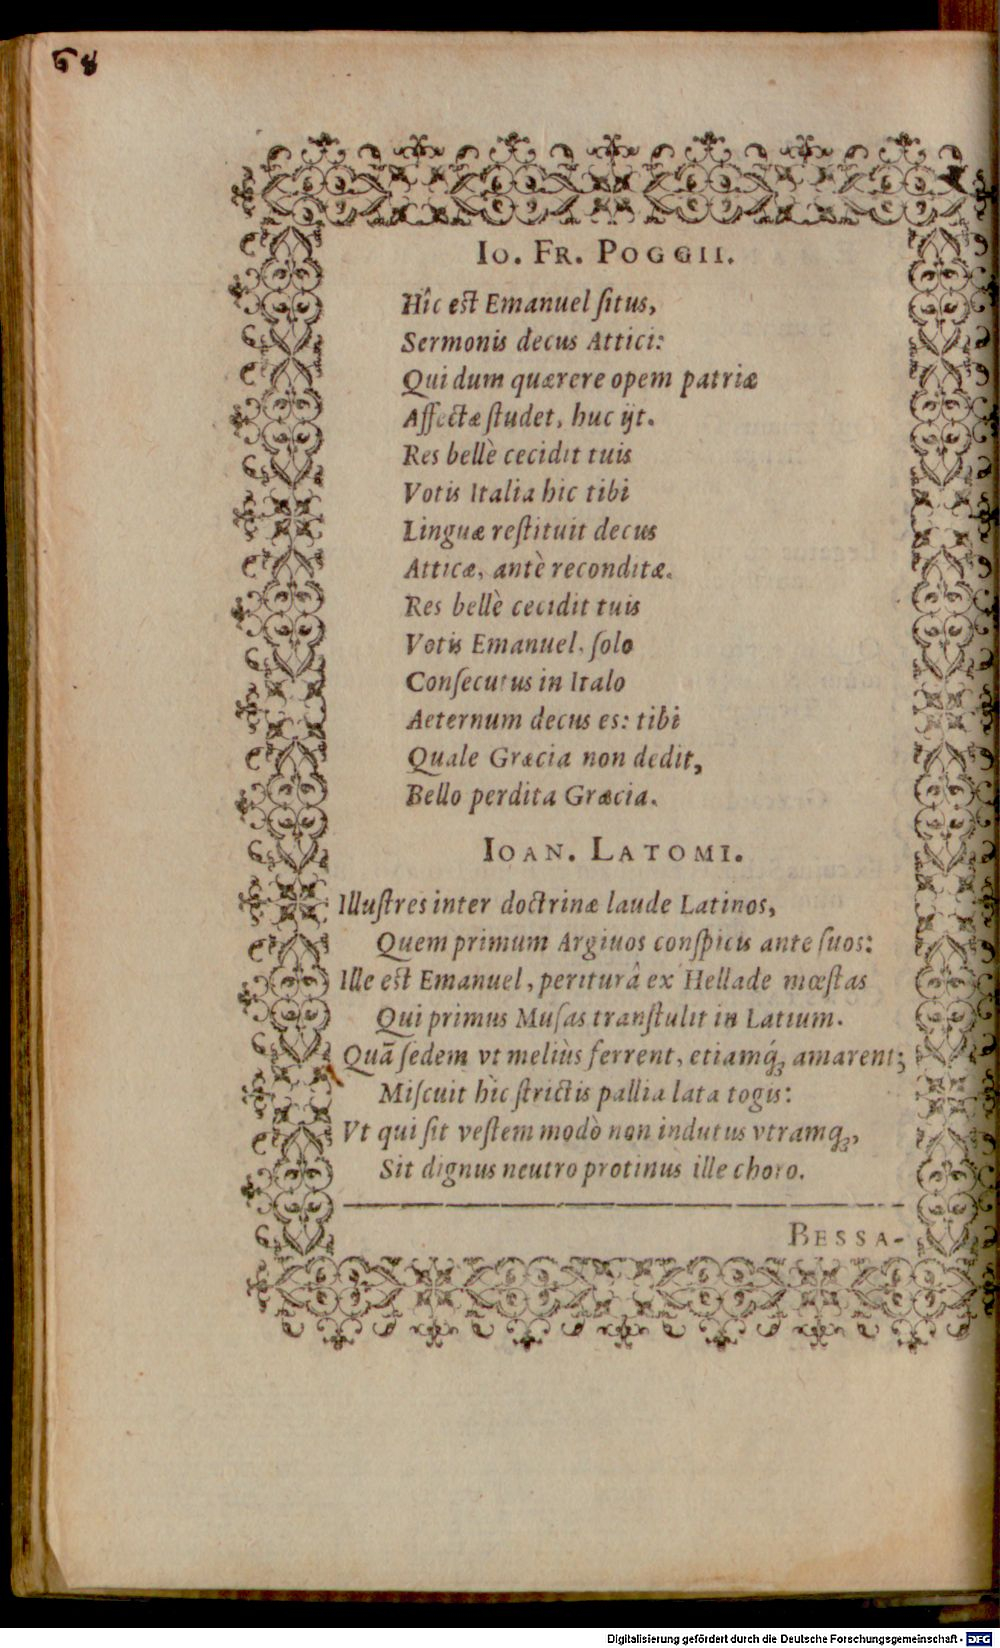 68
IO. FR. POGGII.
Hîc est Emanuel ſitus,
Sermonis decus Attici:
Qui dum quærere opem patriæ
Affectæ ſtudet, huc ijt.
Res bellè cecidit tuis
Votis Italia hic tibi
Linguæ reſtituit decus
Atticæ, antè reconditæ.
Res bellè cecidit tuis
Votis Emanuel, ſolo
Conſecutus in Italo
Aeternum decus es: tibi
Quale Græcia non dedit,
Bello perdita Græcia.
IOAN. LATOMI.
Illuſtres inter doctrinæ laude Latinos,
Quem primum Argiuos conſpicis ante ſuos:
Ille est Emanuel, periturâ ex Hellade mœſtas
Qui primus Muſas tranſtulit in Latium.
Quã ſedem vt meliùs ferrent, etiamq́ꝫ amarent;
Miſcuit hìc ſtrictis pallia lata togis:
Vt qui ſit veſtem modò non indutus vtramqꝫ,
Sit dignus neutro protinùs ille choro.
BESSA-
Digitalisierung gefördert durch die Deutsche Forschungsgemeinschaft - DFG